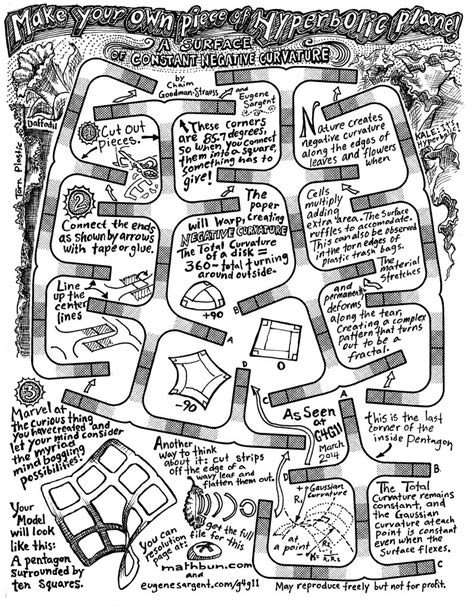 Make Your Own piece of Hyperbolic Plane!
A SURFACE
OF CONSTANT NEGATIVE CURVATURE
by
Chaim
Goodman-Strauss
and
Eugene
Sargent
Torn Plastic
Daffodil
KALE: It's
Hyperbolic!
1
Cut Out
Pieces.
These corners
are 85.7 degrees,
so when you connect
them into a square,
something has to
give!
Nature creates
negative curvature
along the edges of
leaves and flowers
when
2
Connect the ends
as shown by arrows
with tape or glue.
The
paper
will warp, creating
NEGATIVE CURVATURE
The Total Curvature
of a disk =
360 - total turning
around outside.
Cells
multiply
adding
extra area. The Surface
ruffles to accomodate.
This can also be observed
in the torn edges of
plastic trash bags.
The
material
stretches
and permanently
deforms
along the tear,
Creating a complex
pattern that turns
out to be a
fractal.
Line
up the
center
lines
+90
0
-90
A
B
D
C
3
Marvel at
the curious thing
you have created and
let your mind consider
the myriad
mind boggling
possibilities!
As Seen
at
G4G11
March
2014
A
this is the last
corner of the
inside Pentagon
B
Another
way to think
about it: cut strips
off the edge of a
wavy leaf and
flatten them out.
D
+ Gaussian
Curvature
R1
R2
at a point
K = 1/R1R2
The Total
Curvature remains
constant, and the
Gaussian
Curvature at each
Point is constant
even when the
Surface flexes.
C
Your
Model
will look
like this:
A pentagon
surrounded by
ten squares.
You can get the full
resolution file for this
image at:
mathbun.com
and
eugenesargent.com/g4g11
May reproduce freely but not for profit.